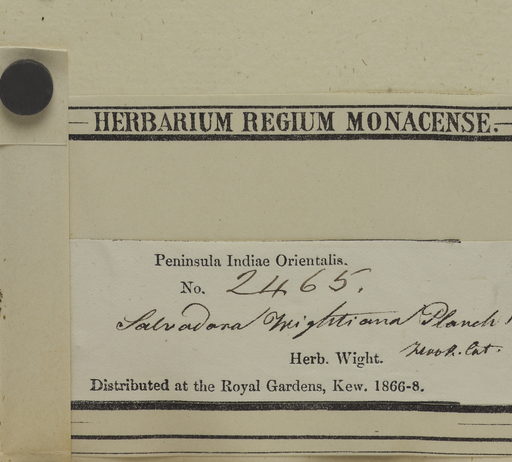 HERBARIUM REGIUM MONACENSE.
Peninsula Indiae Orientalis.
No. 2465.
Salvadora Wightiana Planch
Herb. Wight.
Distributed at the Royal Gardens, Kew. 1866-8.